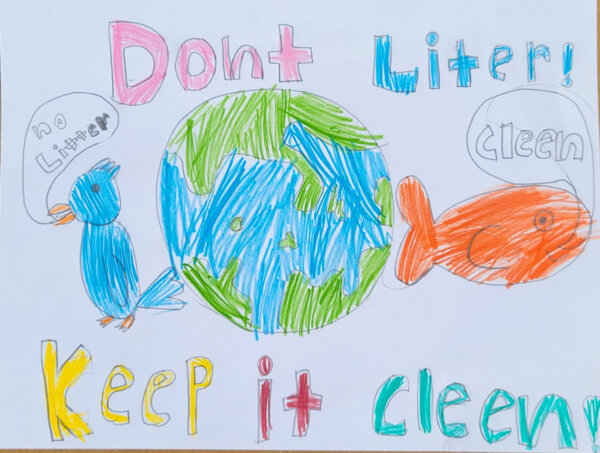 Dont Liter!
no
Litter
cleen
Keep it cleen!